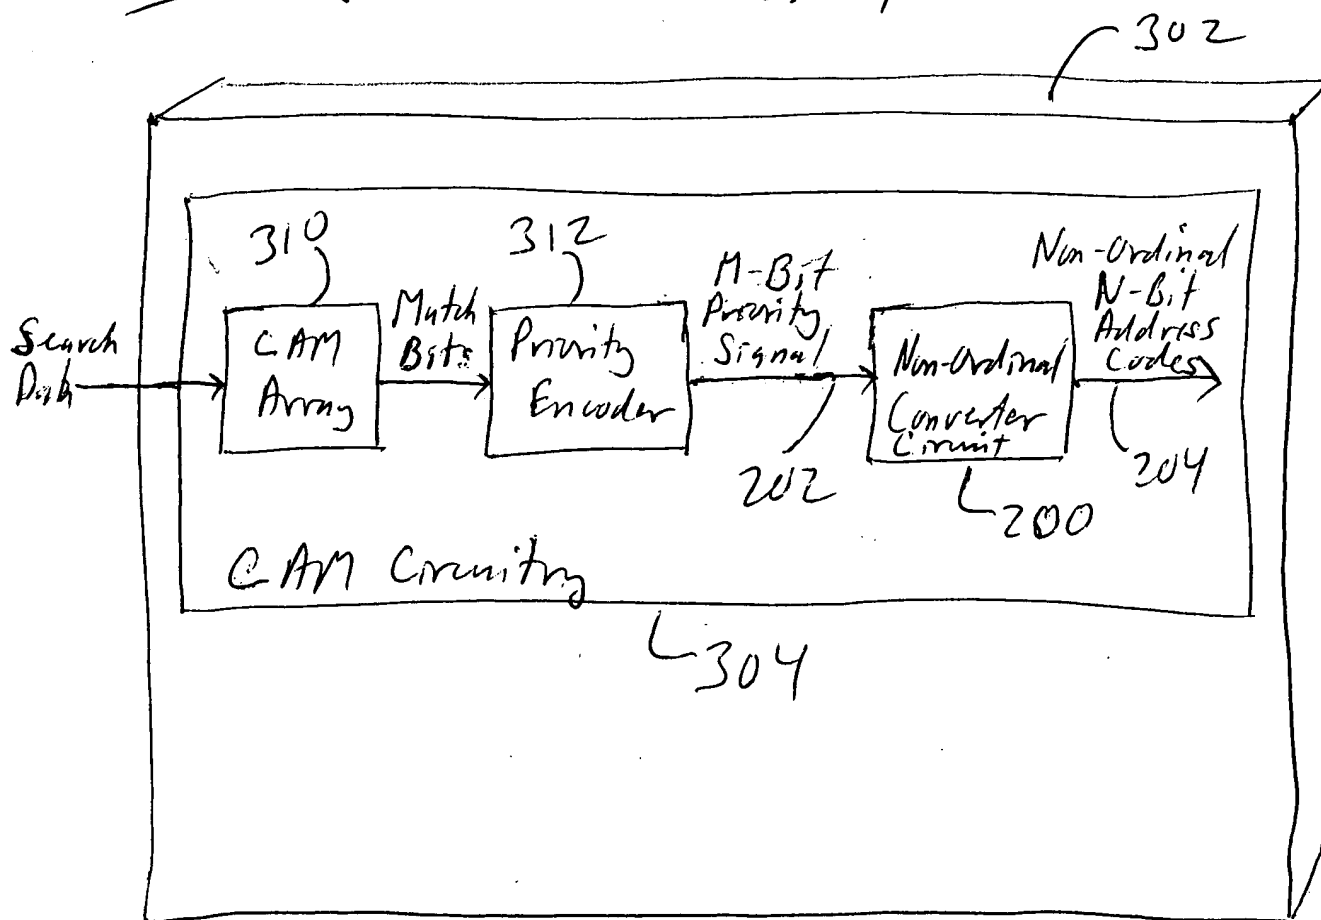 302
310
312
CAM
Array
Match
Bits
Priority
Encoder
M-Bit
Priority
Signal
Non-Ordinal
Converter
Circuit
Non-Ordinal
N-Bit
Address
Codes
Search
202
200
204
CAM Circuitry
304